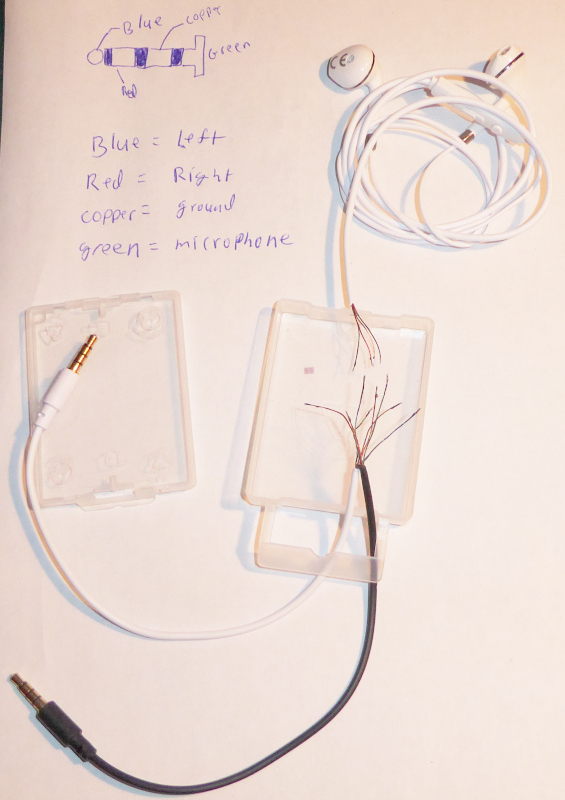 Blue
copper
Green
Red
Blue = Left
Red = Right
copper = ground
green = microphone
CE